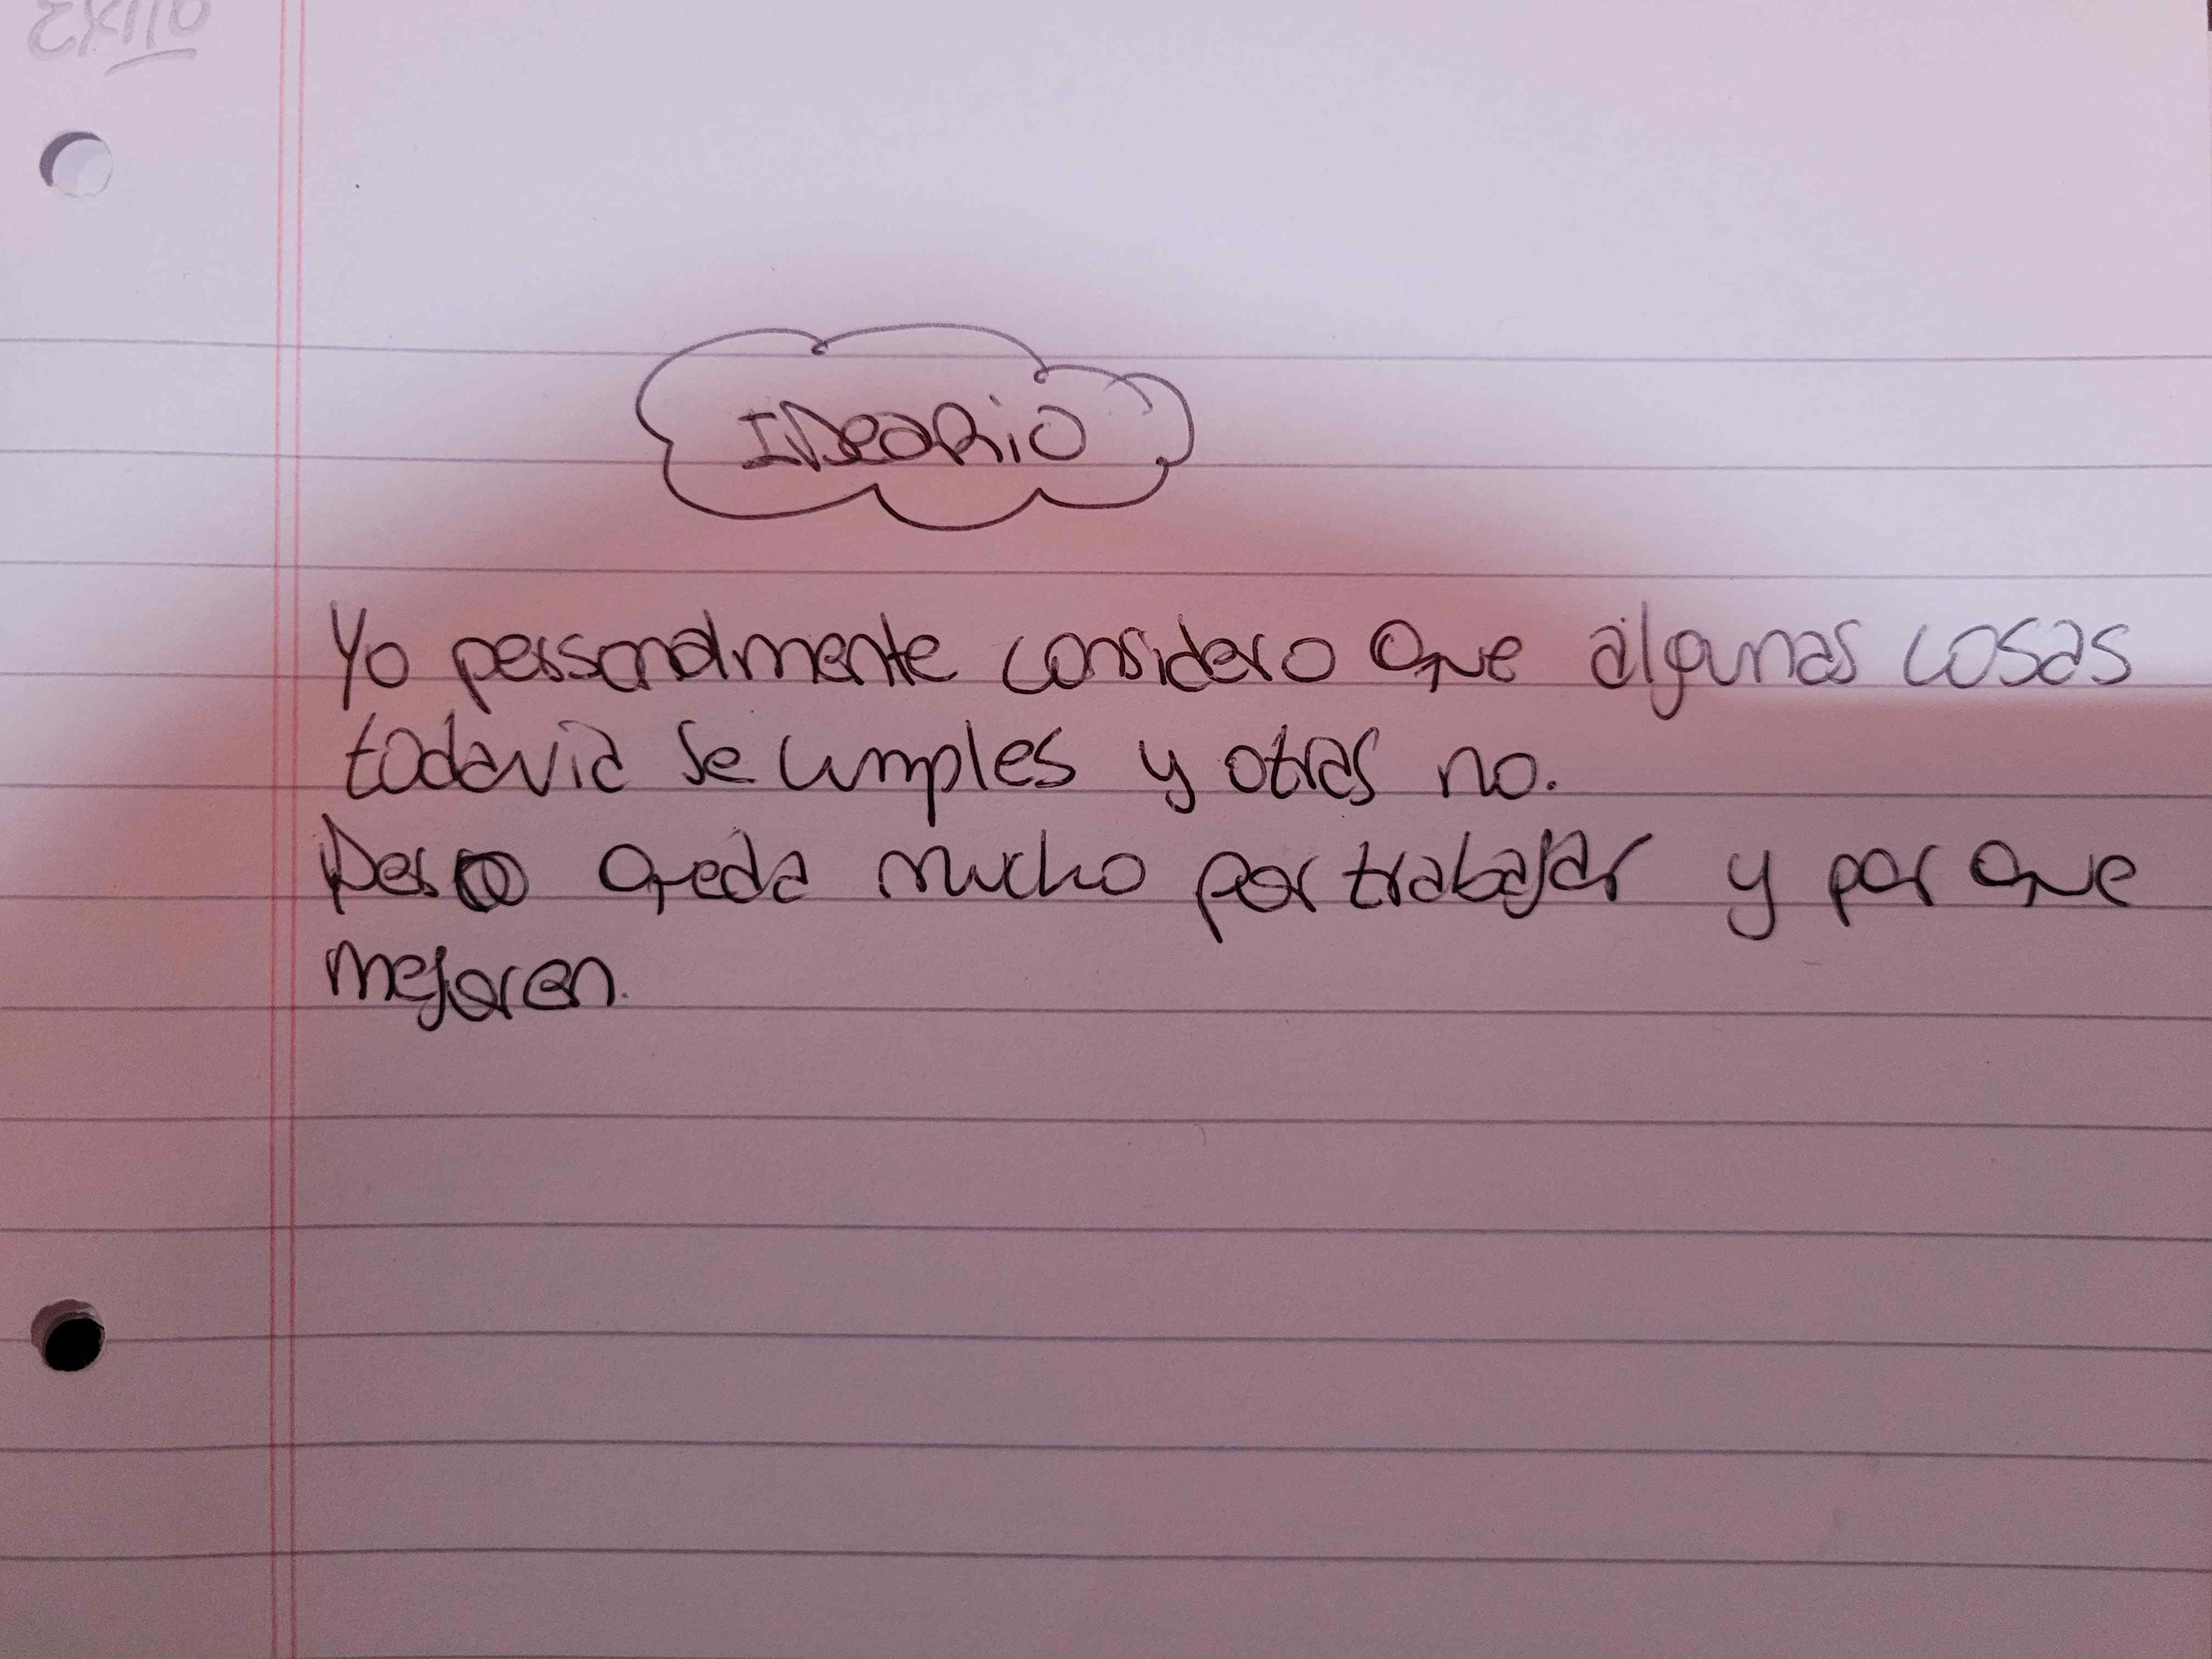 IDeaRio
Yo personalmente considero que algunas cosas
todavia se cumples y otras no.
Pero queda mucho por trabajar y por que
mejoren.